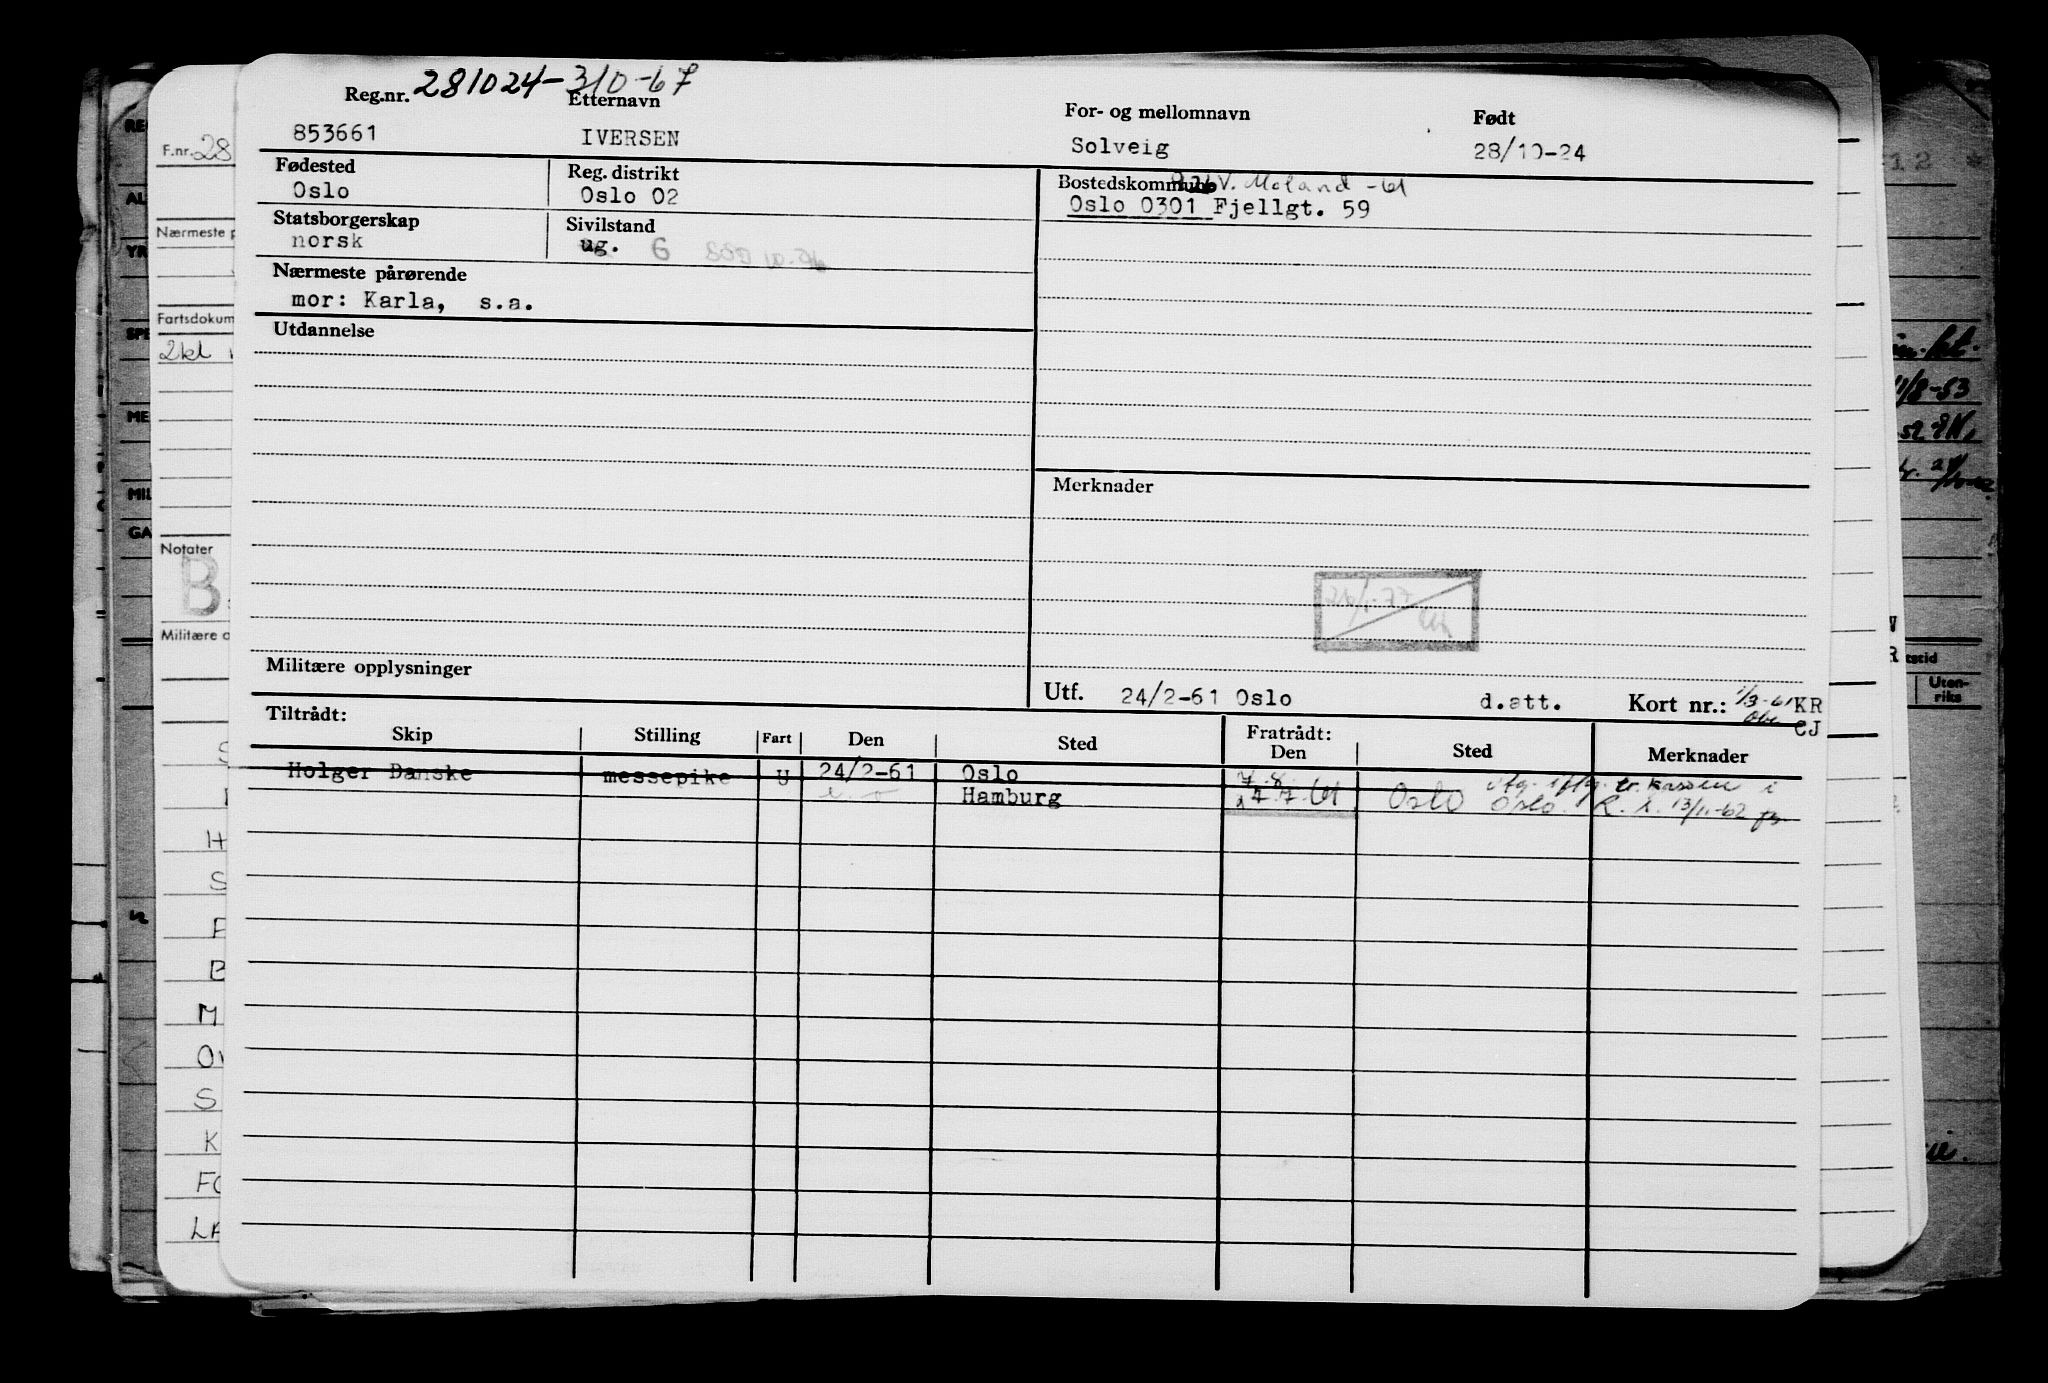 Reg.nr. 281024-310-67
Etternavn For- og mellomnavn Født
853661 IVERSEN Solveig 28/10-24
Fødested Reg. distrikt Bostedskommune V. Moland -61
Oslo Oslo 02 Oslo 0301 Fjellgt. 59
Statsborgerskap Sivilstand
norsk ug. G
Nærmeste pårørende
mor: Karla, s.a.
Utdannelse
Merknader
26/1-77
Militære opplysninger
Utf. 24/2-61 Oslo d.att. Kort nr.: 1/3-61 KR
CJ
Tiltrådt: Fratrådt:
Skip Stilling Fart Den Sted Den Sted Merknader
Holger Danske messepike U 24/2-61 Oslo 7.8. kassen i
Hamburg 17.7.61 Oslo Oslo. R. 13/11-62
F.nr. 28
Nærmeste p
Fartsdokum
2kl
Notater
B
Militære o
S
H
S
F
B
M
S
K
FO
LA
RE
AL
YR
SPE
ME
MIL
GA
12 *
kt.
11/8-53
R
tstid
Uten-
riks